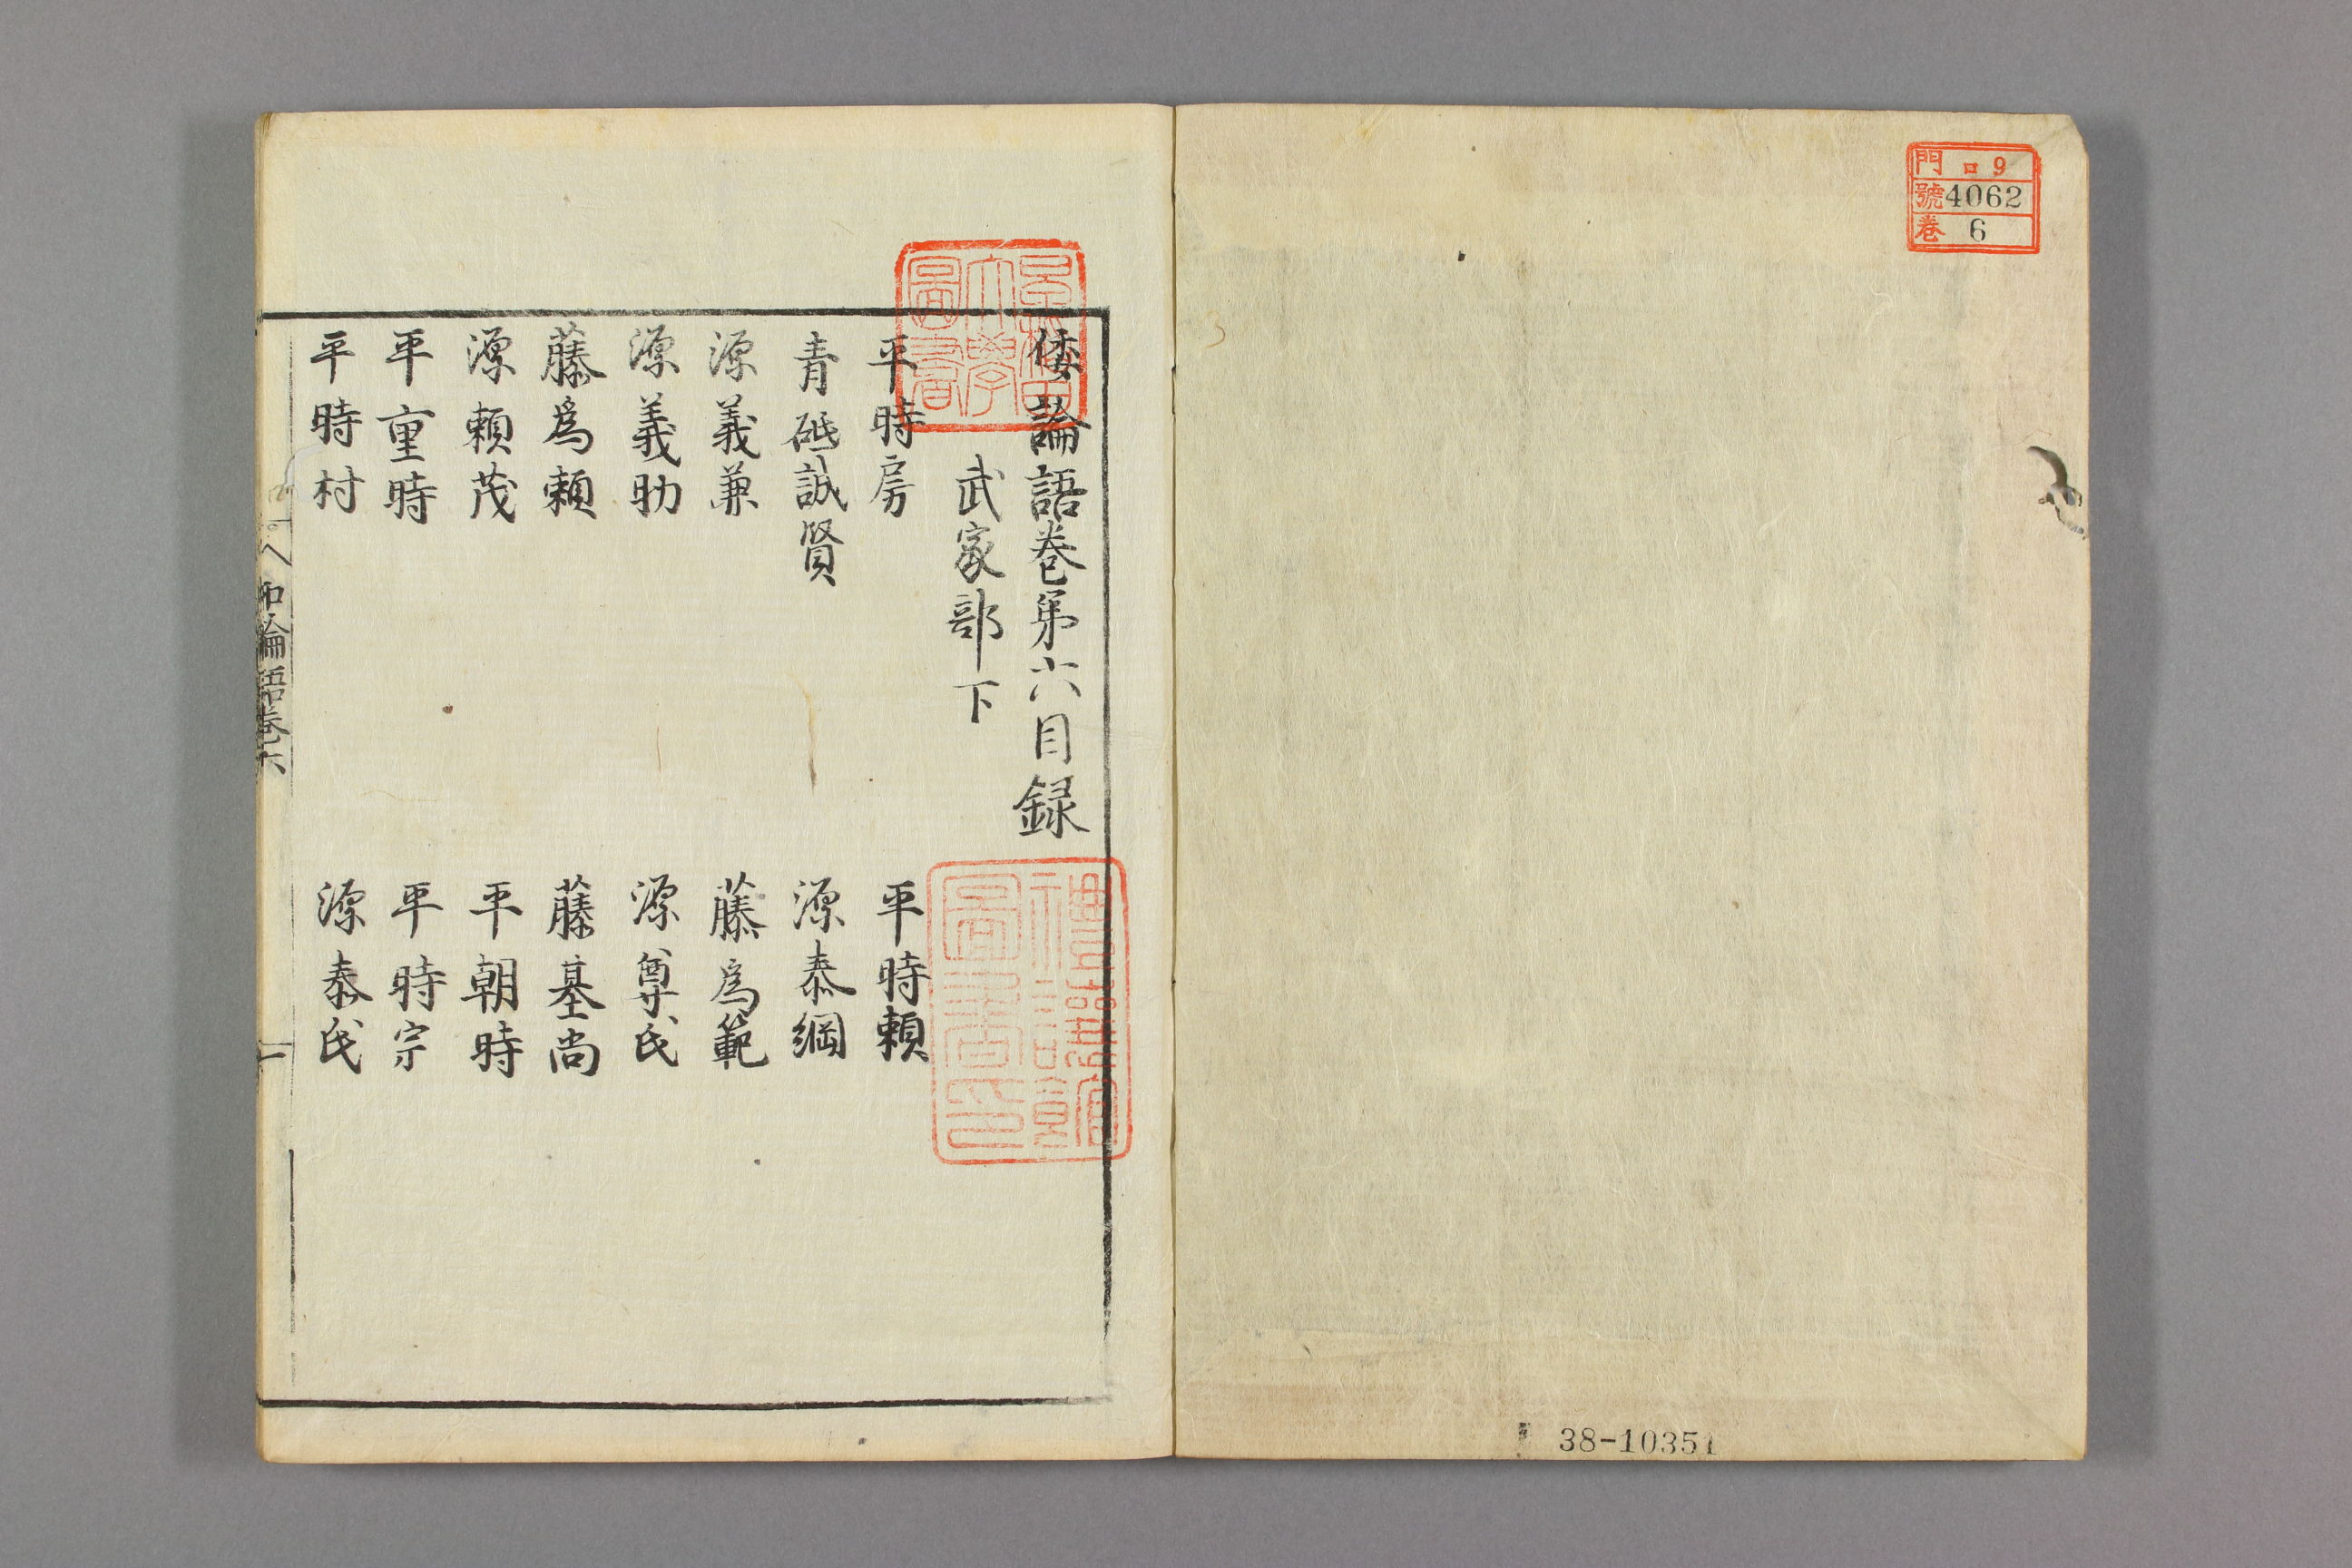 門 ロ9
號 4062
卷 6
38-10351
倭論語卷第六目録
武家部下
平時房 平時頼
青砥誠賢 源泰綱
源義兼 藤為範
源義助 源尊氏
藤為頼 藤基尚
源頼茂 平朝時
平重時 平時宗
平時村 源泰氏
和論語卷六 一
早稲田大學圖書
圖書印